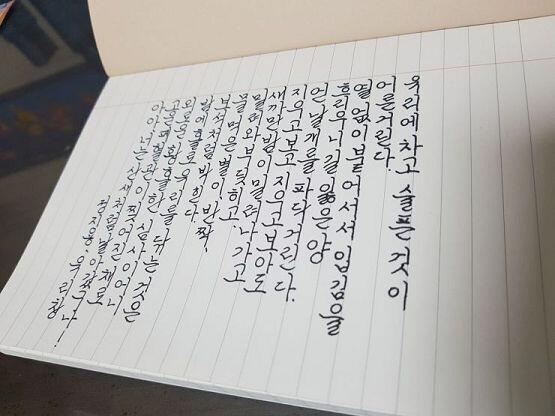 유리에 차고 슬픈 것이
어른거린다.
열없이 붙어서서 입김을
흐리우니 길 잃은 양
언 날개를 파닥거린다.
지우고 보고 지우고 보아도
새까만 밤이 밀려나가고
밀려와 부딪히고,
물 먹은 별이, 반짝,
보석처럼 박힌다.
밤에 홀로 유리를 닦는 것은
외로운 황홀한 심사이어니
고운 폐혈관이 찢어진 채로
아아, 너는 산새처럼 날아갔구나!
정지용, 유리창